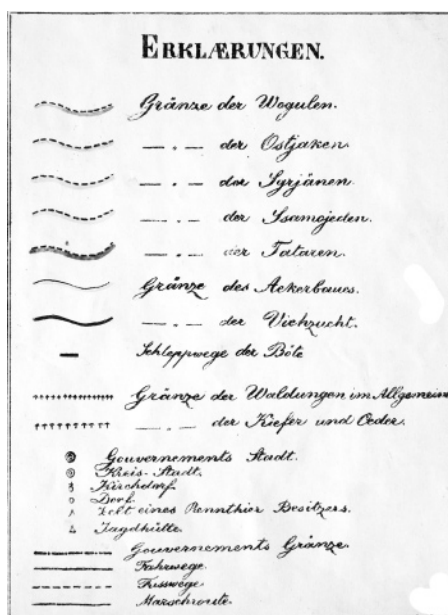 ERKLÆRUNGEN.
Gränze der Wogulen.
— „ — der Ostjaken.
— „ — der Syrjänen.
— „ — der Ssamojeden.
— „ — der Tataren.
Gränze des Ackerbaues.
— „ — der Viehzucht.
Schleppwege der Böte
Gränze der Waldungen im Allgemeine
— „ — der Kiefer und Ceder.
Gouvernements Stadt.
Kreis-Stadt.
Kirchdorf.
Dorf.
Zelt eines Rennthier Besitzers.
Jagdhütte.
Gouvernements Gränze.
Fahrwege.
Fusswege.
Marschroute.